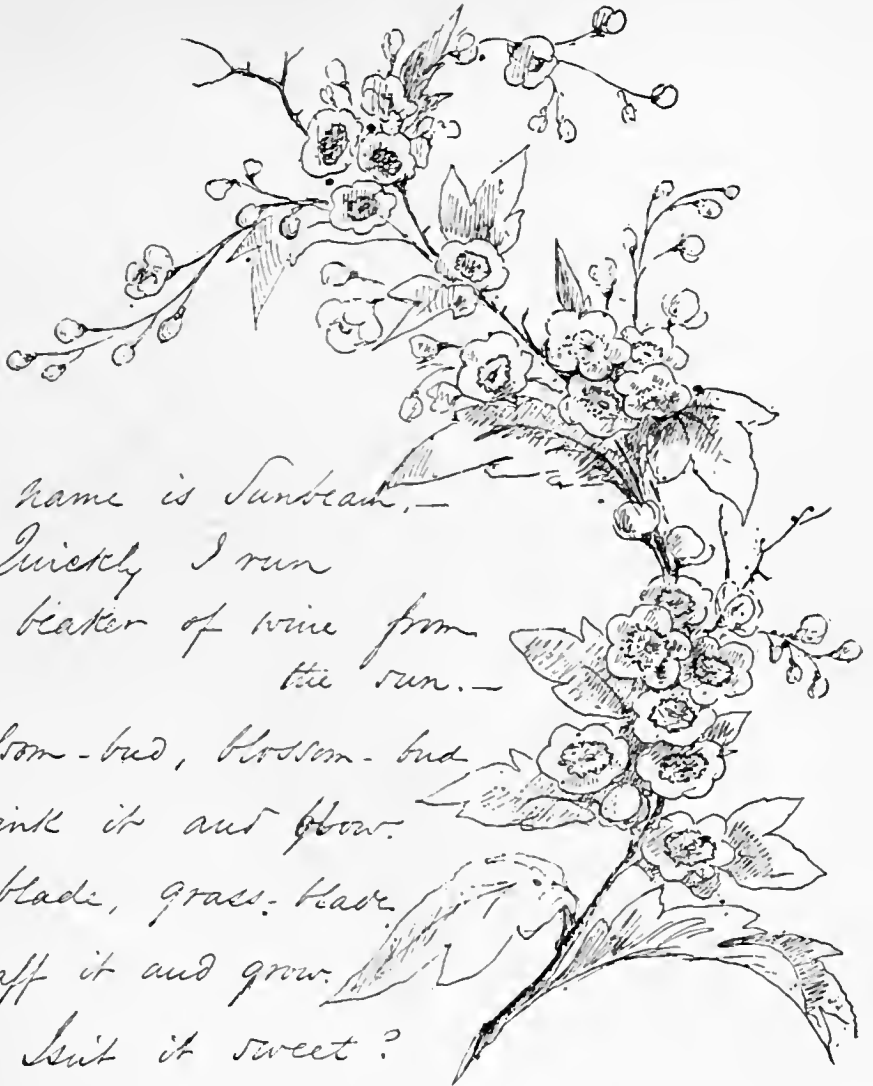 name is Sunbeam,—
Quickly I run
beaker of wine from
the sun.—
som-bud, blossom-bud
ink it and blow.
blade, grass-blade
aff it and grow.
Isn't it sweet?